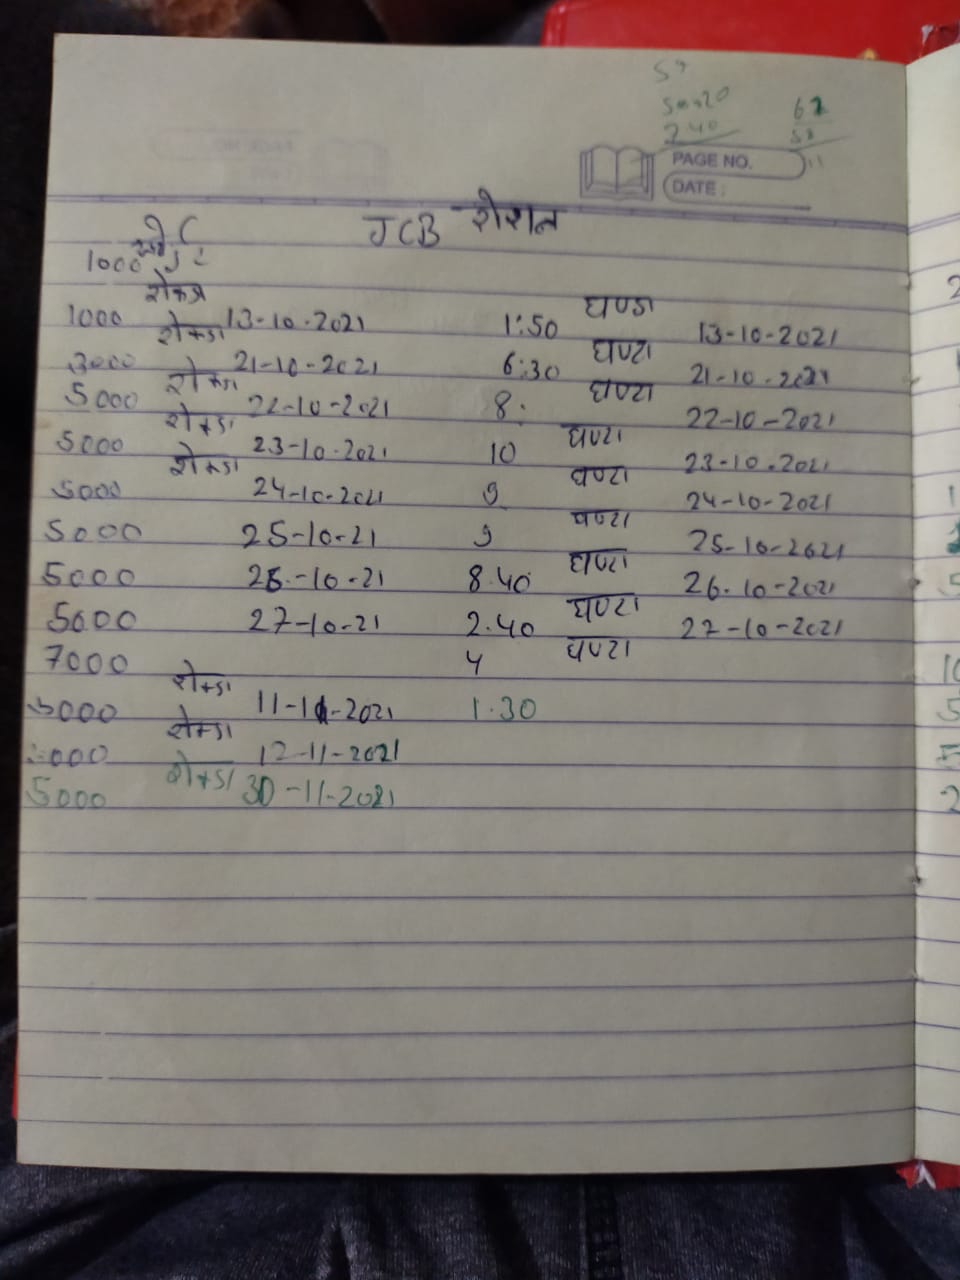 PAGE NO.
DATE :
JCB रोशन
1000
1000 रोकडा 13-10-2021 1:50 घण्टा 13-10-2021
3000 रोकडा 21-10-2021 6:30 घण्टा 21-10-2021
5000 रोकडा 22-10-2021 8. घण्टा 22-10-2021
5000 रोकडा 23-10-2021 10 घण्टा 23-10-2021
5000 रोकडा 24-10-2021 9 घण्टा 24-10-2021
5000 25-10-21 9 घण्टा 25-10-2021
5000 26-10-21 8.40 घण्टा 26-10-2021
5000 27-10-21 2.40 घण्टा 27-10-2021
7000 4 घण्टा
5000 रोकडा 11-11-2021 1.30
रोकडा 12-11-2021
5000 रोकडा 30-11-2021